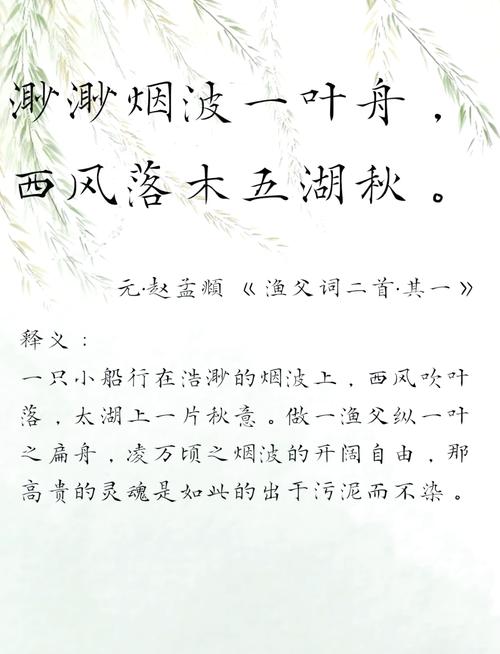 渺渺烟波一叶舟，
西风落木五湖秋。
元·赵孟頫《渔父词二首·其一》
释义：
一只小船行在浩渺的烟波上，西风吹叶
落，太湖上一片秋意。做一渔父纵一叶
之扁舟，凌万顷之烟波的开阔自由，那
高贵的灵魂是如此的出于污泥而不染。